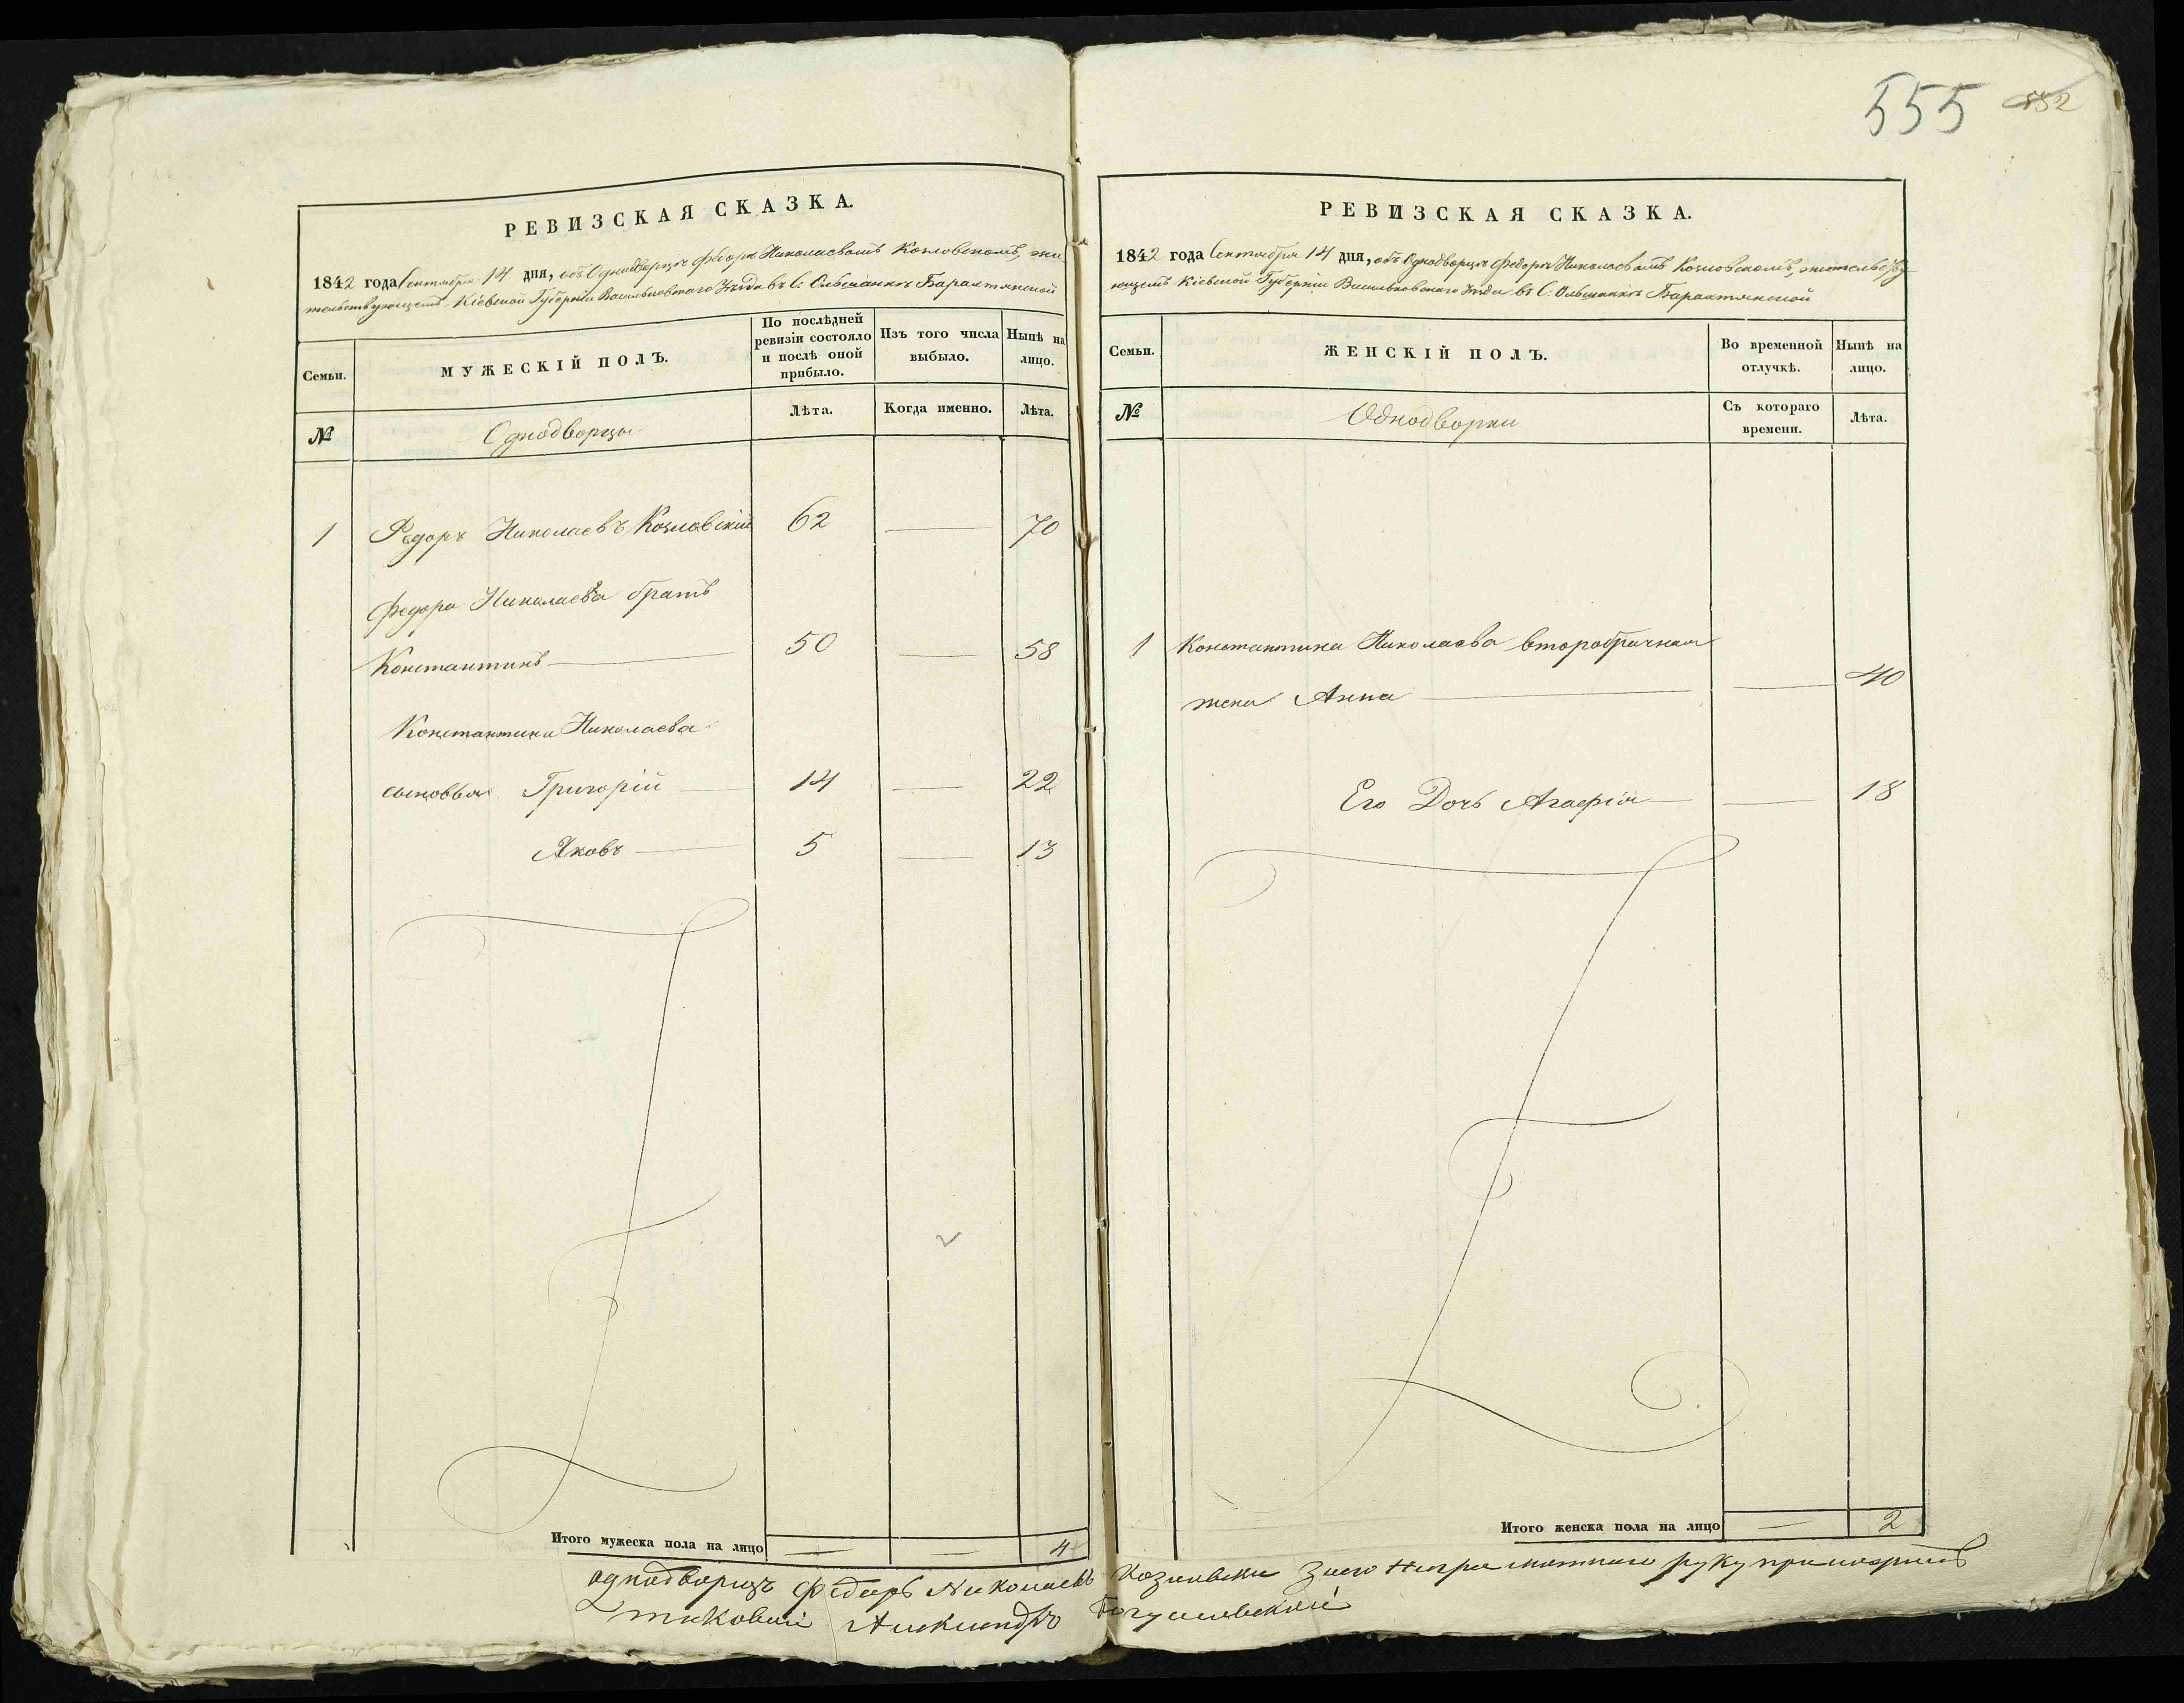 555 552
РЕВИЗСКАЯ СКАЗКА.
1842 года Сентября 14 дня, объ Однодворцѣ Федорѣ Николаевомъ Козловскомъ, жи
тельствующемъ Кіевской Губерніи Васильковскаго Уѣзда въ С: Ольшанкѣ Барахтянской
Семьи.
МУЖЕСКІЙ ПОЛЪ.
По послѣдней
ревизіи состояло
и послѣ оной
прибыло.
Изъ того числа
выбыло.
Нынѣ на
лицо.
№
Однодворцы
Лѣта.
Когда именно.
Лѣта.
1 Федоръ Николаевъ Козловскій 62 — 70
Федора Николаева братъ
Константинъ — 50 — 58
Константина Николаева
сыновья Григорій — 14 — 22
Яковъ — 5 — 13
Итого мужеска пола на лицо — — 4
РЕВИЗСКАЯ СКАЗКА.
1842 года Сентября 14 дня, объ Однодворцѣ Федорѣ Николаевомъ Козловскомъ, жительству
ющемъ Кіевской Губерніи Васильковскаго Уѣзда въ С: Ольшанкѣ Барахтянской
Семьи.
ЖЕНСКІЙ ПОЛЪ.
Во временной
отлучкѣ.
Нынѣ на
лицо.
№
Однодворки
Съ котораго
времени.
Лѣта.
1 Константина Николаева второбрачная
жена Анна — — 40
Его Дочь Агафія — — 18
Итого женска пола на лицо — 2
однодворцъ Федоръ Николаевъ Козловски
Александръ Богушевскій